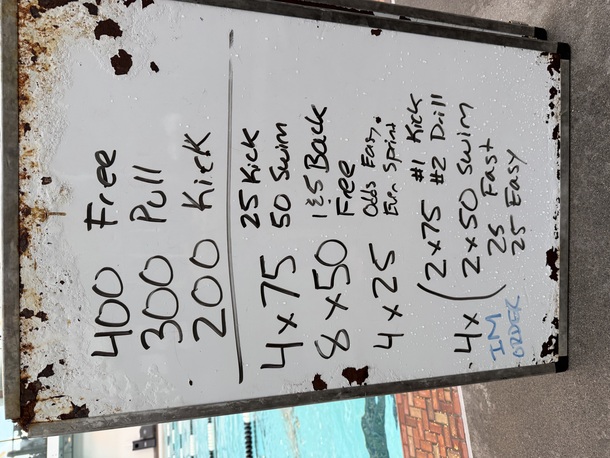 400 Free
300 Pull
200 Kick
4 x 75 25 Kick
50 Swim
8 x 50 1&5 Back
Free
4 x 25 Odds Easy
Evn Sprint
4x ( 2 x 75 #1 Kick
#2 Drill
2 x 50 Swim
IM 25 Fast
ORDER 25 Easy